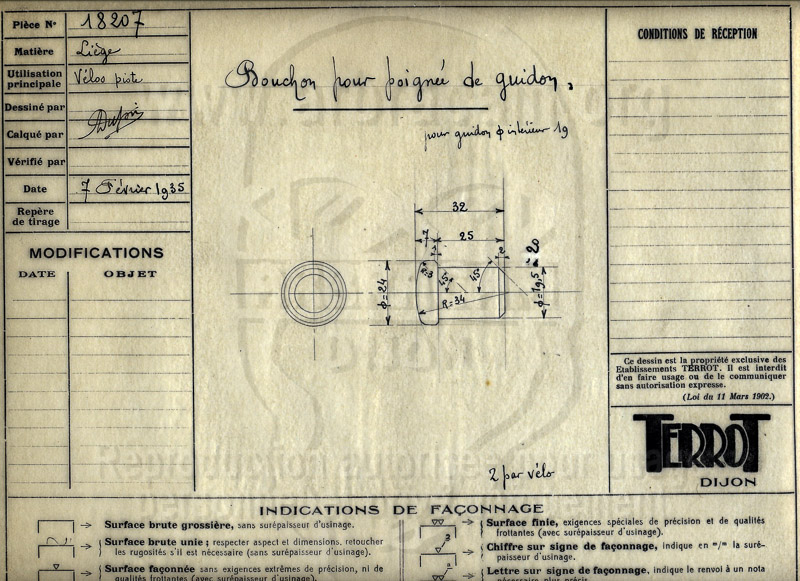 Pièce Nº 18207
Matière Liège
Utilisation
principale Vélos piste
Dessiné par
Calqué par
Vérifié par
Date 7 Février 1935
Repère
de tirage
MODIFICATIONS
DATE OBJET
Bouchon pour poignée de guidon.
pour guidon φ intérieur 19
32
7 25
2
R=3
45°
45°
R=34
φ=24
φ=19,5 à 20
2 par vélo
CONDITIONS DE RÉCEPTION
Ce dessin est la propriété exclusive des
Etablissements TERROT. Il est interdit
d'en faire usage ou de le communiquer
sans autorisation expresse.
(Loi du 11 Mars 1902.)
TERROT
DIJON
INDICATIONS DE FAÇONNAGE
Surface brute grossière, sans surépaisseur d'usinage.
Surface brute unie ; respecter aspect et dimensions, retoucher
les rugosités s'il est nécessaire (sans surépaisseur d'usinage).
Surface façonnée sans exigences extrêmes de précision, ni de
qualités frottantes (avec surépaisseur d'usinage).
Surface finie, exigences spéciales de précision et de qualités
frottantes (avec surépaisseur d'usinage).
3
Chiffre sur signe de façonnage, indique en "/" la suré-
paisseur d'usinage.
a
Lettre sur signe de façonnage, indique le renvoi à un nota
nécessaire plus précis.